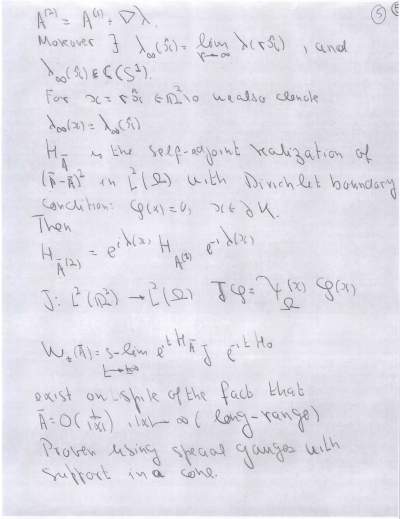 5
A̅^(2) = A̅^(1) + ∇λ.
Moreover ∃ λ_∞(x̂) = lim_{r→∞} λ(r x̂), and
λ_∞(x̂) ∈ C(S^1).
For x = r x̂ ∈ R^2\0 we also denote
λ_∞(x) = λ_∞(x̂)
H_A̅ is the self-adjoint realization of
(p̅-A̅)^2 in L^2(Ω) with Dirichlet boundary
condition: φ(x) = 0, x ∈ ∂K.
Then
H_A̅^(2) = e^{iλ(x)} H_A̅^(1) e^{-iλ(x)}
J: L^2(R^2) → L^2(Ω) Jφ = χ_Ω(x) φ(x)
W_±(A̅) = s-lim_{t→±∞} e^{itH_A̅} J e^{-itH_0}
exist on spite of the fact that
A̅ = O(1/|x|), |x| → ∞ (long-range)
Proven using special gauges with
support in a cone.